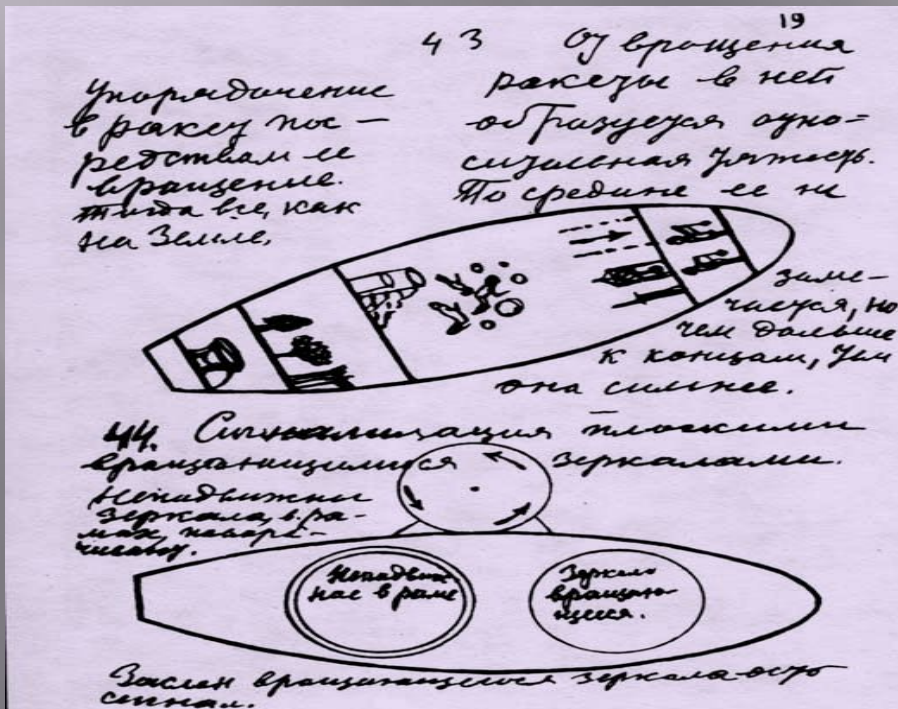 19
43
Упорядочение
в ракету пос-
редствам ее
вращение.
тогда все, как
на Земле.
От вращения
ракеты в ней
образуется отно-
сительная тяжесть.
По средине ее не
заме-
чается, но
чем дальше
к концам, тем
она сильнее.
44. Сигнализация плоскими
вращающимися зеркалами.
Неподвижны
зеркала, в ра-
мах, повора-
чивают.
Неподвиж
ное в раме
Зеркало
вращаю-
щееся.
Заслон вращающегося зеркала есть
сигнал.